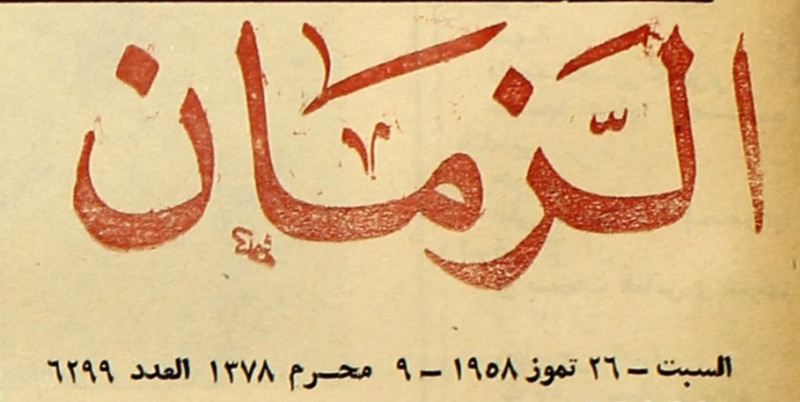 الزّمان
السبت - ٢٦ تموز ١٩٥٨ - ٩ محرم ١٣٧٨ العدد ٦٢٩٩